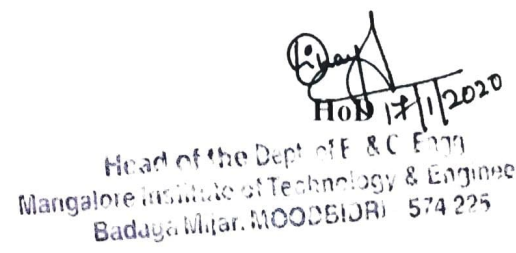 HoD 17/1/2020
Head of the Dept of E & C Engg
Mangalore Institute of Technology & Enginee
Badaga Mijar, MOODBIDRI 574 225